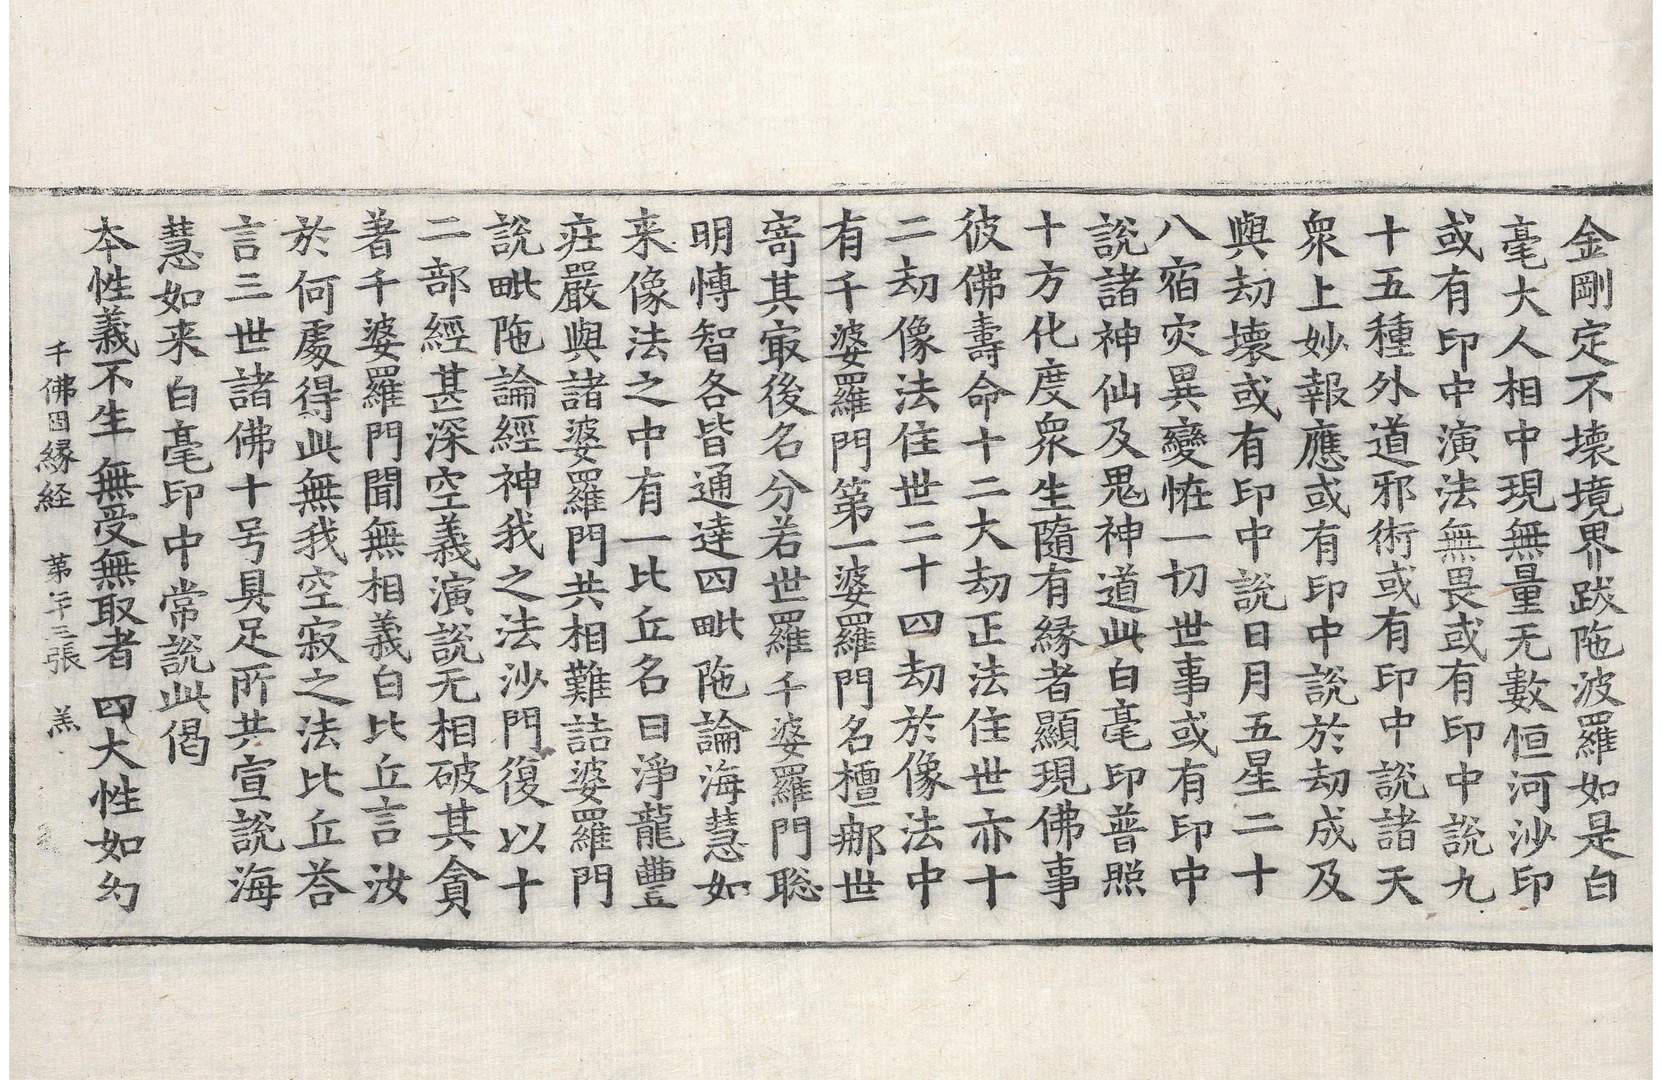 金剛定不壞境界跋陁波羅如是白
毫大人相中現無量无數恒河沙印
或有印中演法無畏或有印中說九
十五種外道邪術或有印中說諸天
眾上妙報應或有印中說於劫成及
與劫壞或有印中說日月五星二十
八宿灾異變恠一切世事或有印中
說諸神仙及鬼神道此白毫印普照
十方化度眾生隨有緣者顯現佛事
彼佛壽命十二大劫正法住世亦十
二劫像法住世二十四劫於像法中
有千婆羅門第一婆羅門名檀那世
寄其㝡後名分若世羅千婆羅門聡
明慱智各皆通達四毗陁論海慧如
来像法之中有一比丘名曰淨龍豐
莊嚴與諸婆羅門共相難詰婆羅門
說毗陁論經神我之法沙門復以十
二部經甚深空義演說无相破其貪
著千婆羅門聞無相義白比丘言汝
於何處得此無我空寂之法比丘荅
言三世諸佛十号具足所共宣說海
慧如来白毫印中常說此偈
本性義不生 無受無取者 四大性如幻
千佛因緣経 第 三張 羔